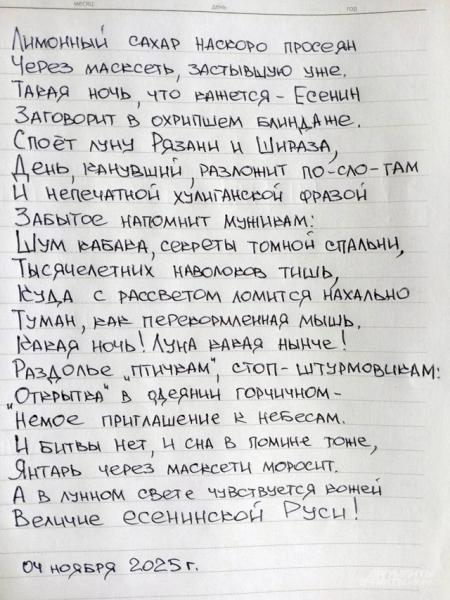 месяц день год
Лимонный сахар наскоро просеян
Через масксеть, застывшую уже.
Такая ночь, что кажется - Есенин
Заговорит в охрипшем блиндаже.
Споёт луну Рязани и Шираза,
День, канувший, разложит по-сло-гам
И непечатной хулиганской фразой
Забытое напомнит мужикам:
Шум кабака, секреты томной спальни,
Тысячелетних наволоков тишь,
Куда с рассветом ломится нахально
Туман, как перекормленная мышь.
Какая ночь! Луна какая нынче!
Раздолье „птичкам", стоп-штурмовикам:
„Открытка" в одеянии горчичном -
Немое приглашение к небесам.
И битвы нет, и сна в помине тоже,
Янтарь через масксети моросит.
А в лунном свете чувствуется кожей
Величие есенинской Руси!
04 ноября 2025 г.